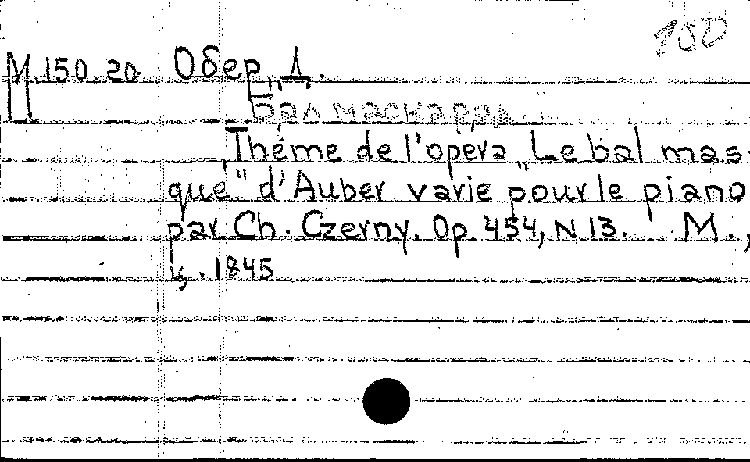 150
М.150.20 Обер, Д.
Бал маскарад
Théme de l'opera „Le bal mas-
qué" d'Auber varie pour le piano
par Ch. Czerny. Op. 454, N 13. М.,
ц. 1845